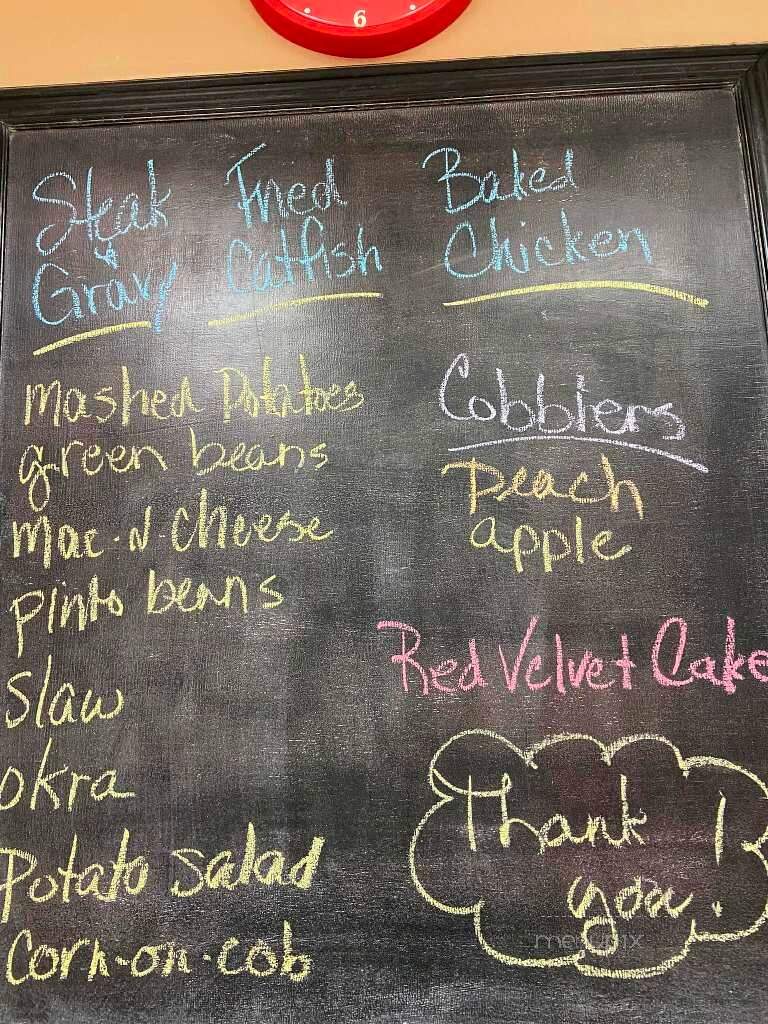 6
Steak
&
Gravy
Fried
Catfish
Baked
Chicken
mashed Potatoes
green beans
mac-n-cheese
pinto beans
Slaw
okra
Potato salad
Corn-on-cob
Cobblers
peach
apple
Red Velvet Cake
Thank
you!
menupix